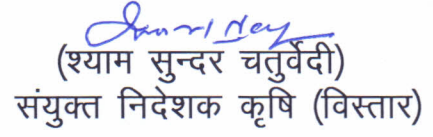 (श्याम सुन्दर चतुर्वेदी)
संयुक्त निदेशक कृषि (विस्तार)